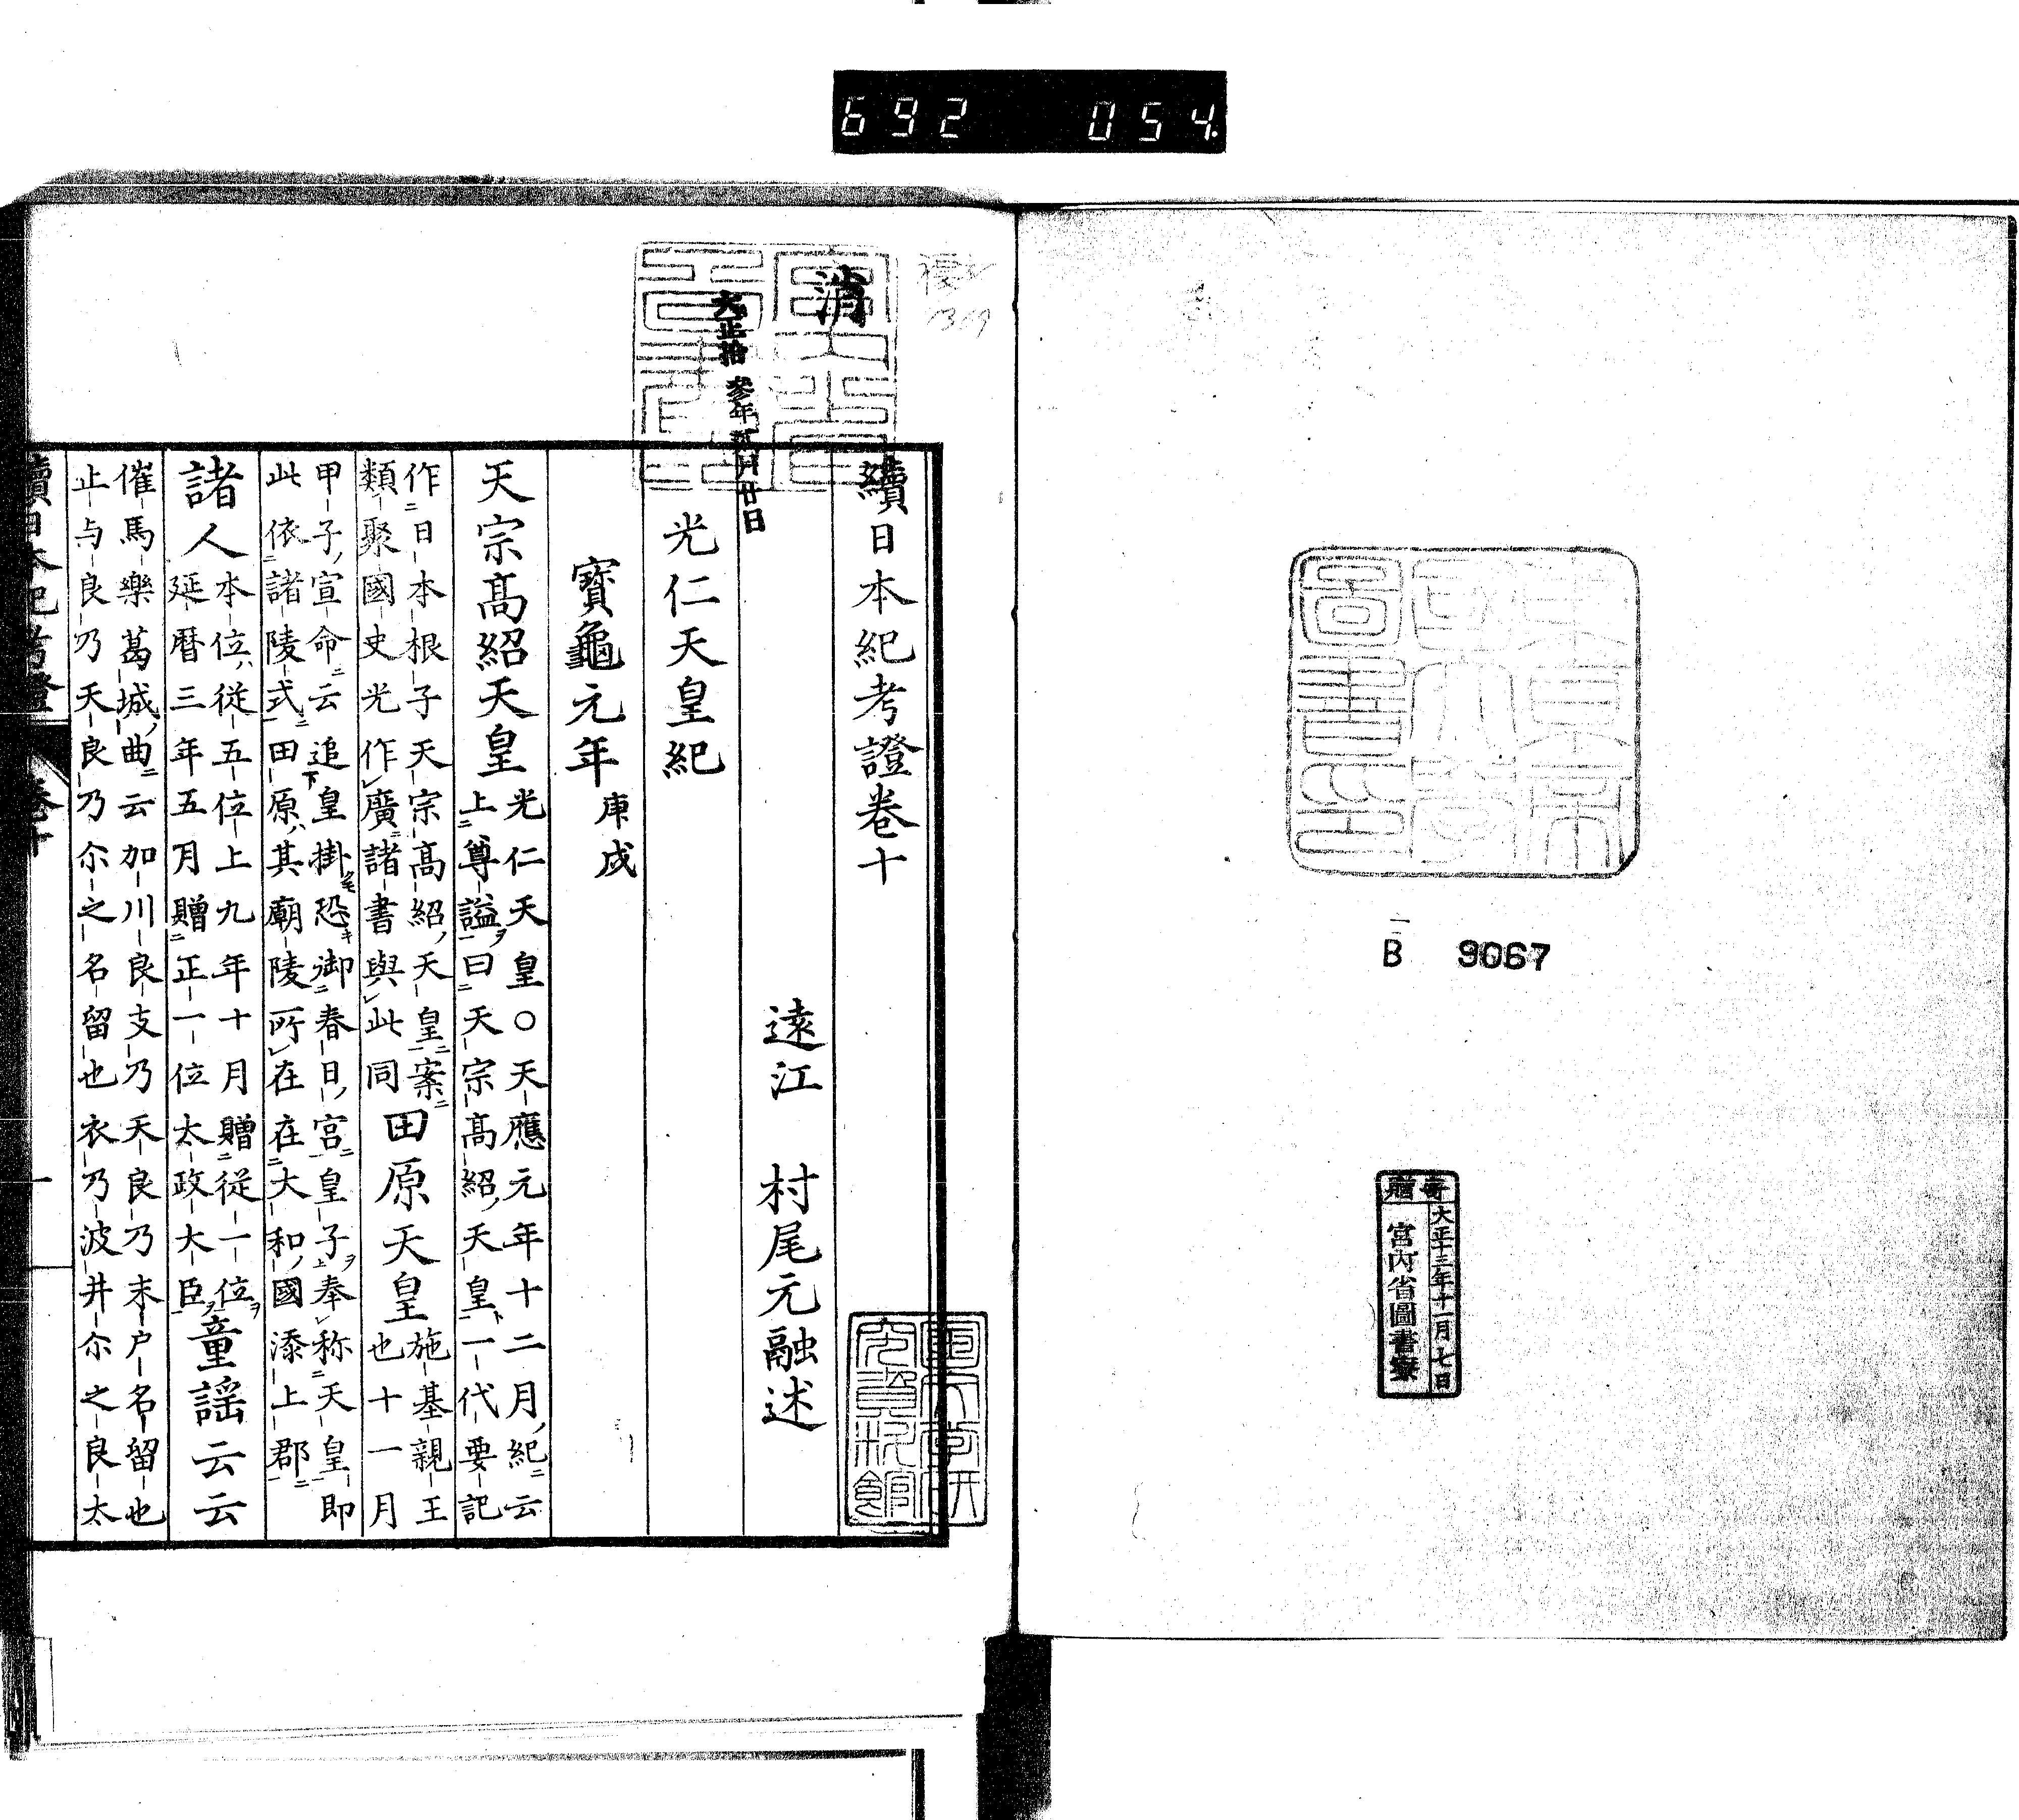 692 054.
東京帝國大學圖書印
B 9067
寄贈
大正十三年十一月七日
宮内省圖書寮
消
大正拾參年 月廿日
續日本紀考證卷十
遠江 村尾元融述
光仁天皇紀
寶龜元年庚戌
天宗高紹天皇光仁天皇○天應元年十二月紀云
上尊謚ヲ曰天宗高紹天皇ト一代要記
作日本根子天宗高紹天皇案
類聚國史光作廣諸書與此同
田原天皇施基親王
也十一月
甲子宣命云追皇掛恐キ御春日宮皇子ヲ奉称天皇即
此依諸陵式田原其廟陵所在在大和國添上郡
諸人本位從五位上九年十月贈從一位ヲ
延暦三年五月贈正一位太政大臣ヲ
童謡云云
催馬樂葛城曲云加川良支乃天良乃末戸名留也
止与良乃天良乃尓之名留也衣乃波井尓之良太
續日本紀考證 卷十 一